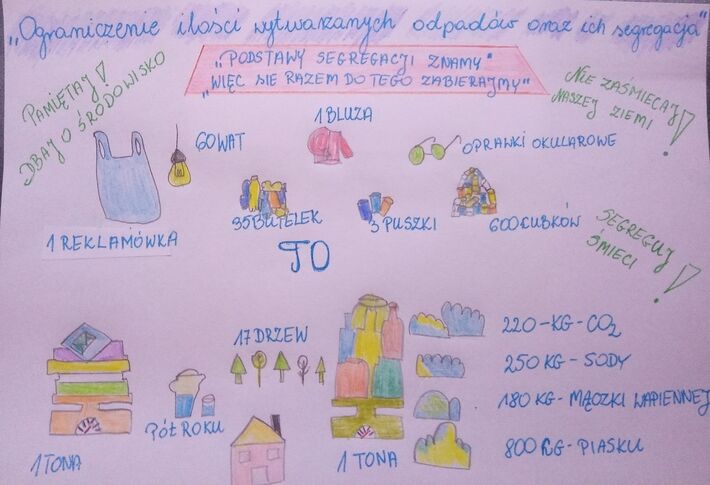 „Ograniczenie ilości wytwarzanych odpadów oraz ich segregacja"
„PODSTAWY SEGREGACJI ZNAMY"
„WIĘC SIĘ RAZEM DO TEGO ZABIERAJMY"
PAMIĘTAJ!
DBAJ O ŚRODOWISKO
NIE ZAŚMIECAJ
NASZEJ ZIEMI!
1 BLUZA
60 WAT
OPRAWKI OKULAROWE
35 BUTELEK
3 PUSZKI
600 KUBKÓW
1 REKLAMÓWKA
TO
SEGREGUJ
ŚMIECI!
17 DRZEW
220-KG-CO2
250 KG-SODY
180 KG-MĄCZKI WAPIENNEJ
800 KG-PIASKU
PÓŁ ROKU
1 TONA
1 TONA